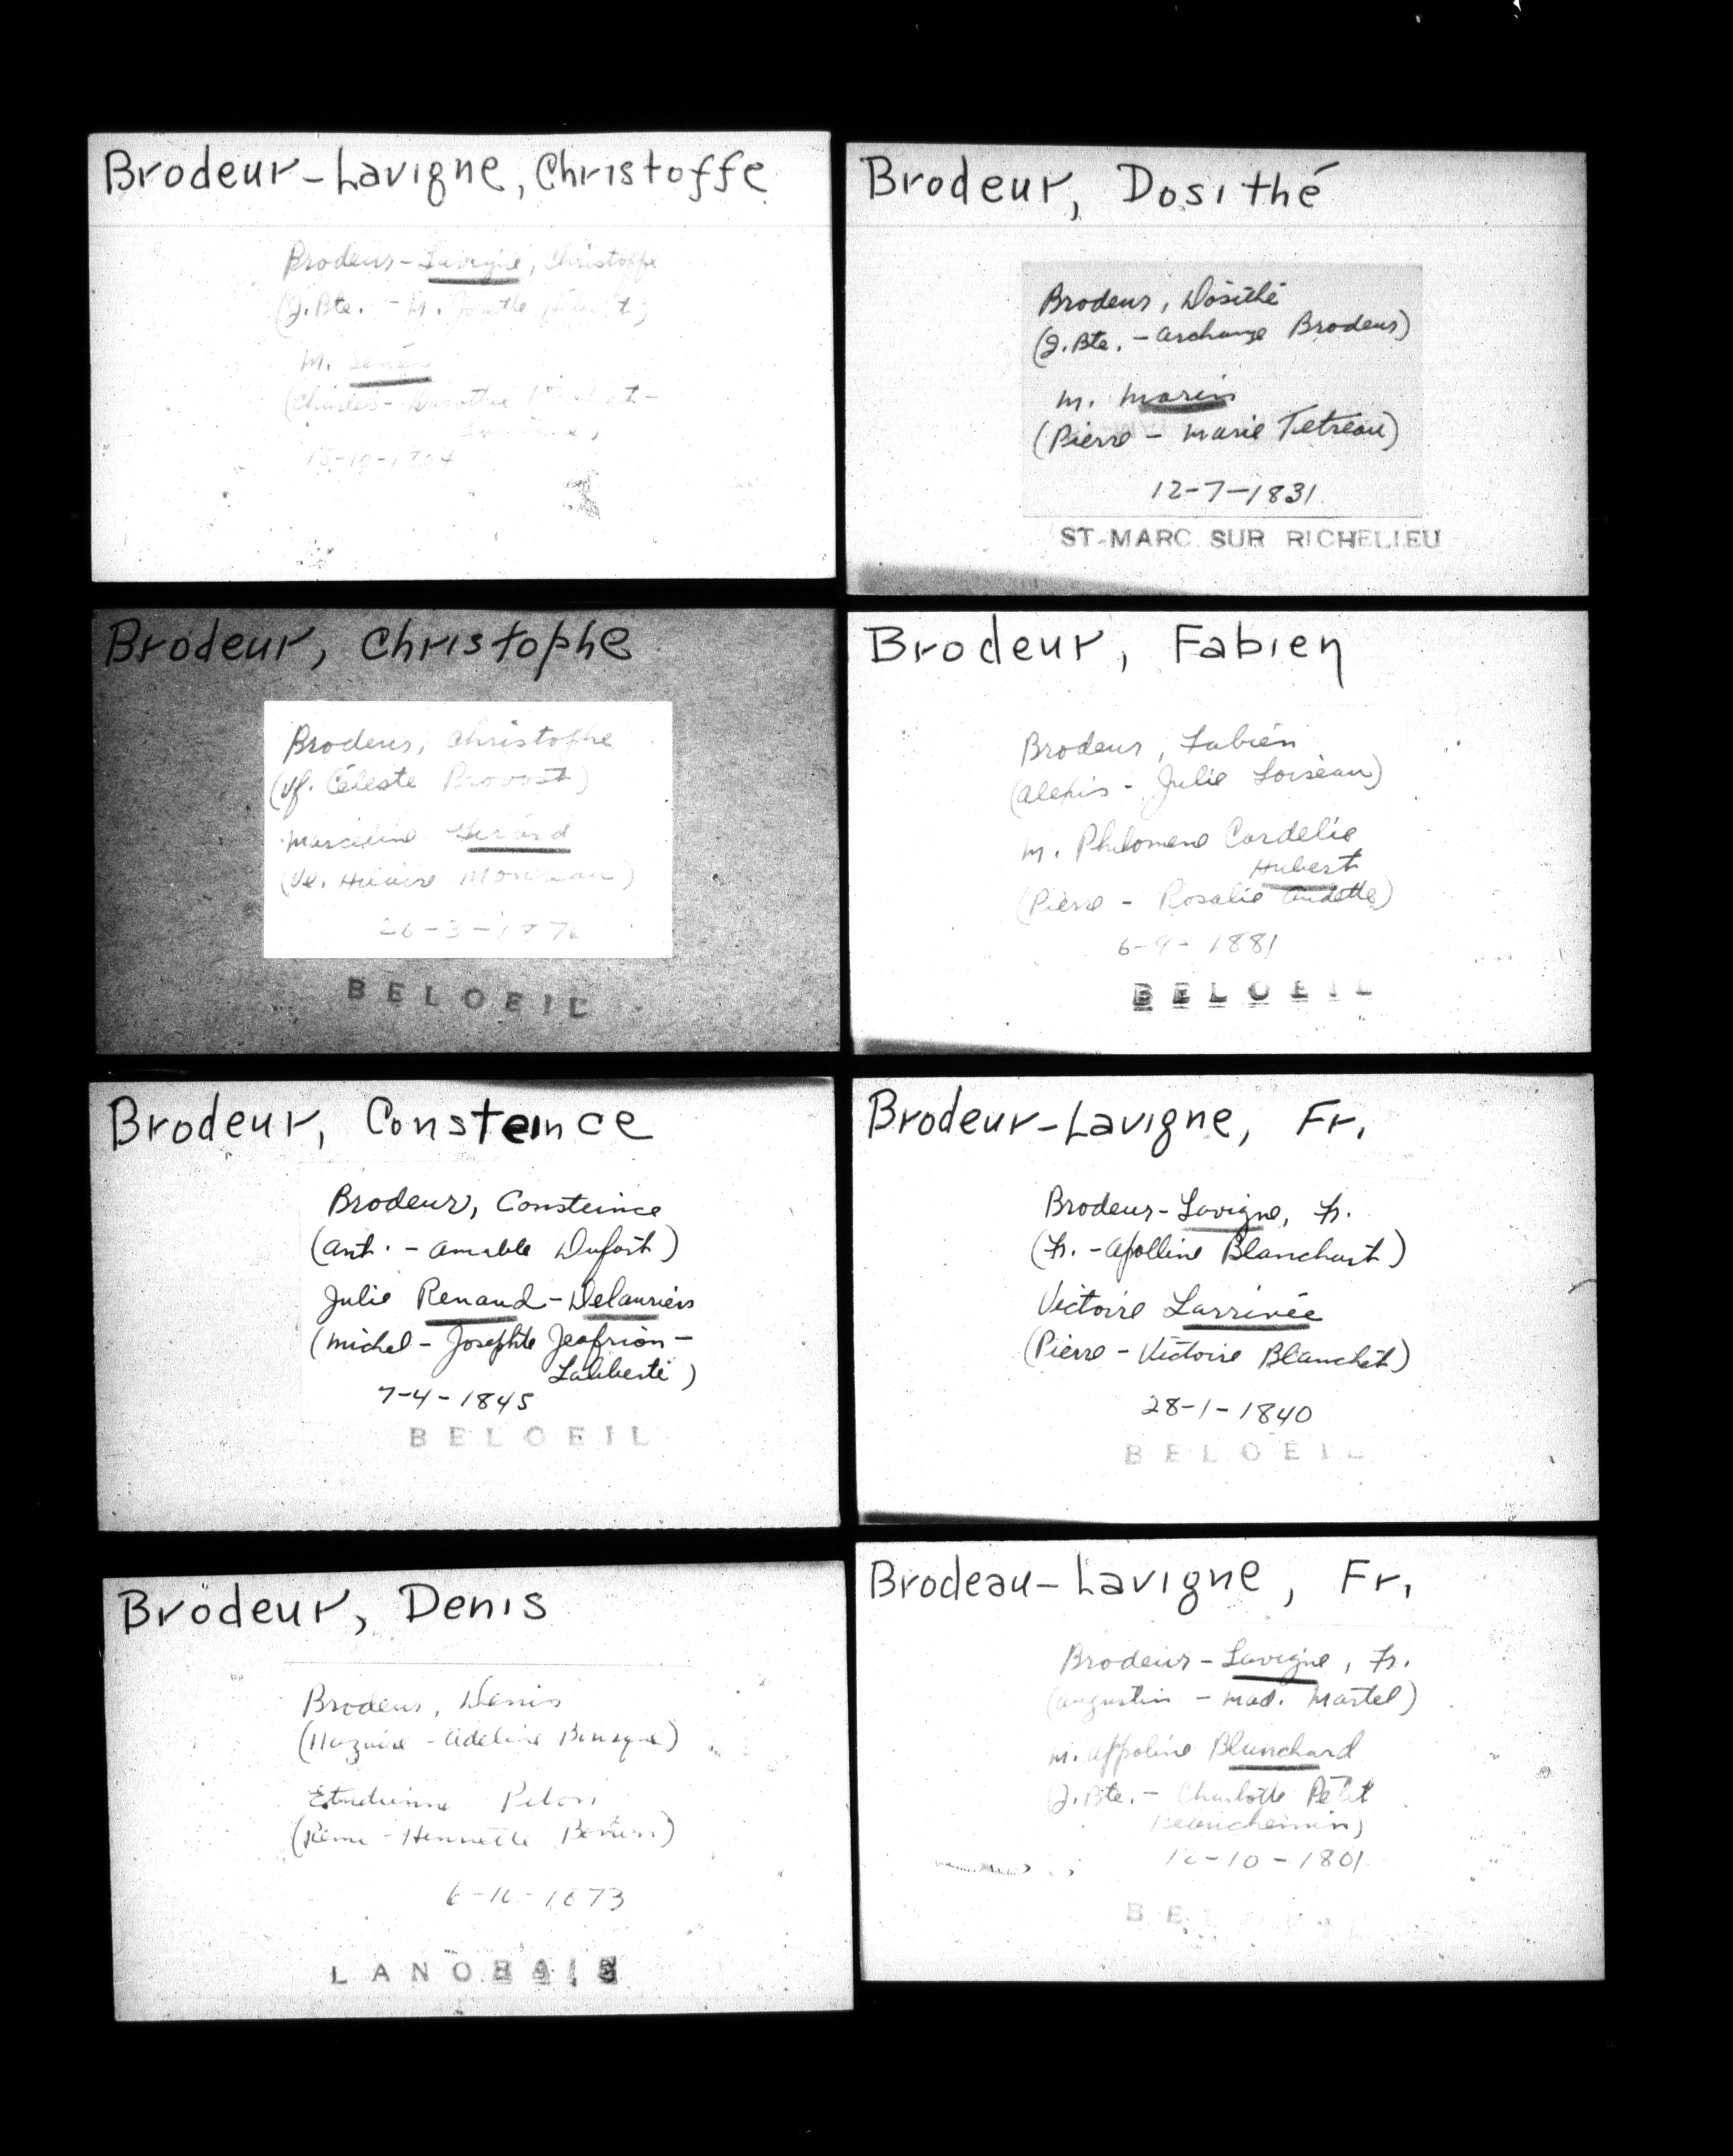 Brodeur-Lavigne, Christoffe
Brodeur-Lavigne, Christoffe
(J. Bte. - M. Josette
m.
(Charles -
Brodeur, Christophe
Brodeur, Christophe
(Vf. Céleste Provost)
Marceline Girard
(Ve. Hilaire
26-3-187
BELOEIL
Brodeur, Consteince
Brodeur, Consteince
(Ant. - Amable Dufort)
Julie Renaud-Delauriers
(Michel - Josephte Jeofrion-
Laliberté)
7-4-1845
BELOEIL
Brodeur, Denis
Brodeur, Denis
(Nazaire - Adeline Bousque)
(Rémi - Henriette
LANORAIE
Brodeur, Dosithé
Brodeur, Dosithé
(J. Bte. - Archange Brodeur)
m. Morin
(Pierre - Marie Tetreau)
12-7-1831
ST-MARC SUR RICHELIEU
Brodeur, Fabien
Brodeur, Fabien
(Alexis - Julie Loiseau)
m. Philomene Cordelie
Hubert
(Pierre - Rosalie Audette)
6-9-1881
BELOEIL
Brodeur-Lavigne, Fr.
Brodeur-Lavigne, Fr.
(Fr. - Apolline Blanchart)
Victoire Larrivée
(Pierre - Victoire Blanchet)
28-1-1840
BELOEIL
Brodeau-Lavigne, Fr.
Brodeur-Lavigne, Fr.
(Augustin - Mad. Martel)
m. Appoline Blanchard
(J. Bte. - Charlotte Petit
Beauchemin)
12-10-1801